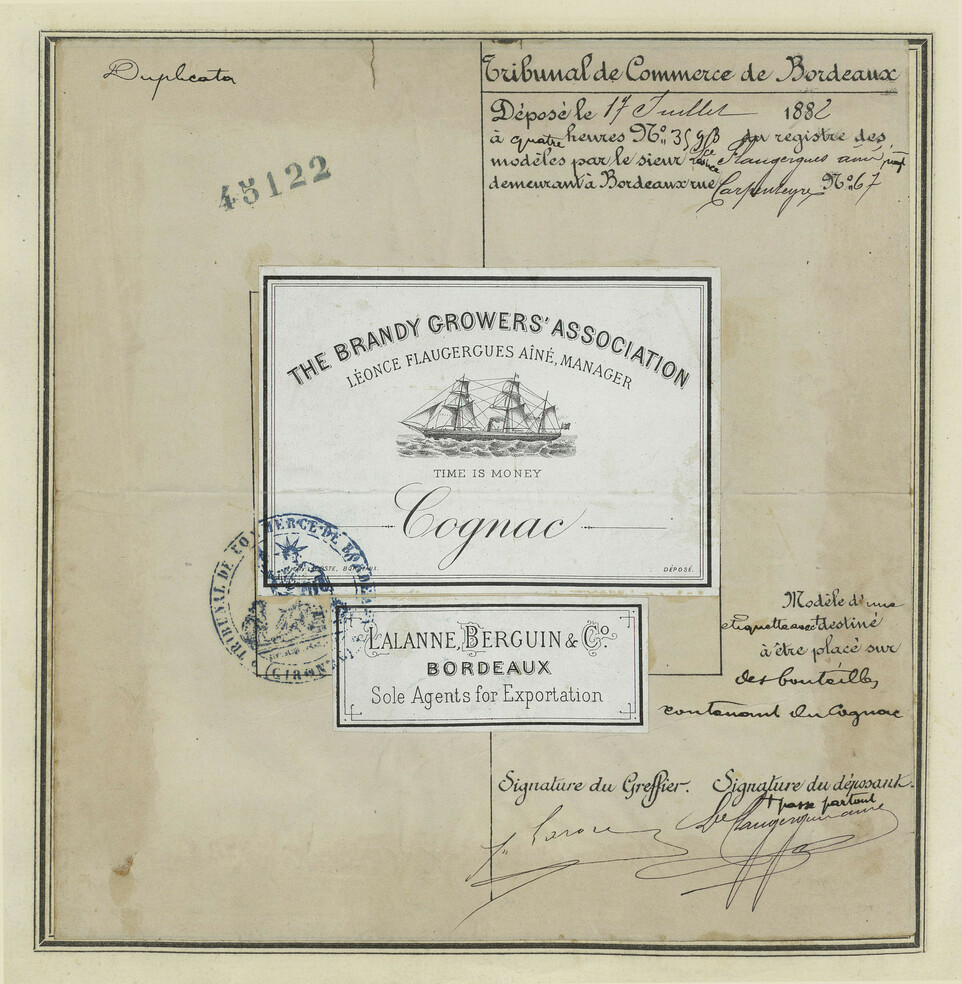 Duplicata
Tribunal de Commerce de Bordeaux
Déposé le 17 Juillet 1882
à quatre heures No. du registre des
modèles par le sieur Léonce Flaugergues aîné
demeurant à Bordeaux rue Carpenteyre No. 67
45122
THE BRANDY GROWERS' ASSOCIATION
LÉONCE FLAUGERGUES AÎNÉ, MANAGER
TIME IS MONEY
Cognac
DÉPOSÉ.
TRIBUNAL DE COMMERCE DE BORDEAUX
GIRONDE
LALANNE, BERGUIN & Co.
BORDEAUX
Sole Agents for Exportation
Modèle d'une
etiquette destiné
à être placé sur
des bouteilles
contenant du Cognac
Signature du Greffier. Signature du déposant.
+ passe partout
Flaugergues aîné